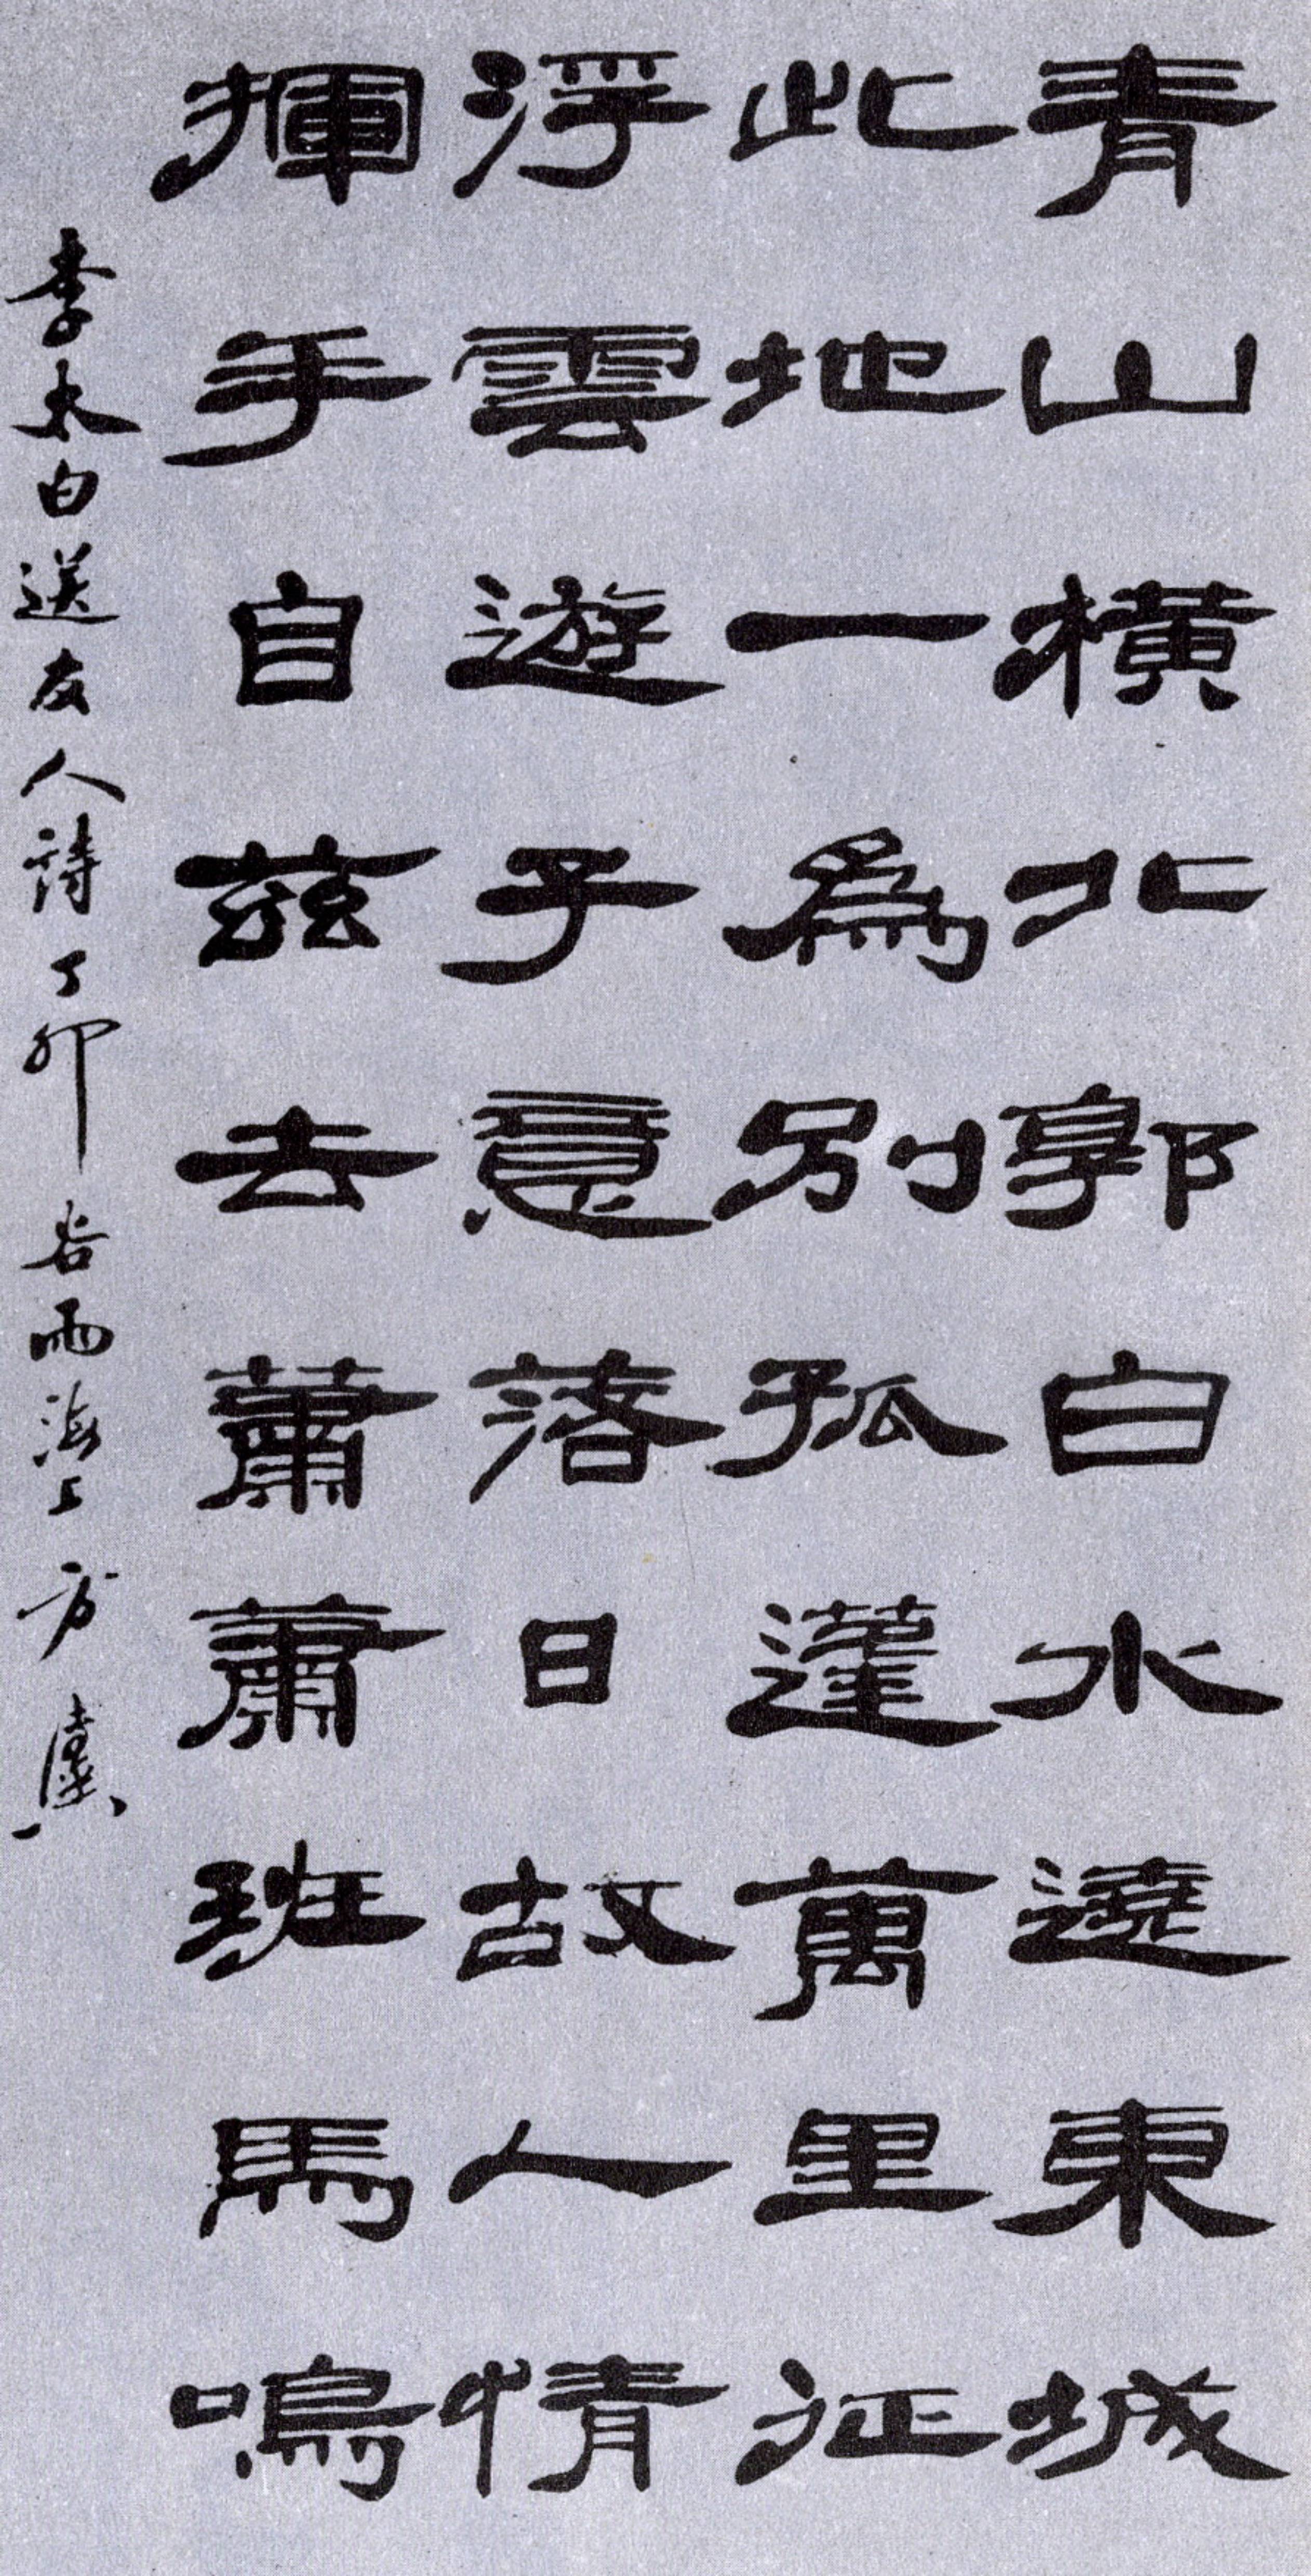 青山橫北郭白水遶東城
此地一為別孤蓬萬里征
浮雲遊子意落日故人情
揮手自茲去蕭蕭班馬鳴
李太白送友人詩丁卯谷雨海上方